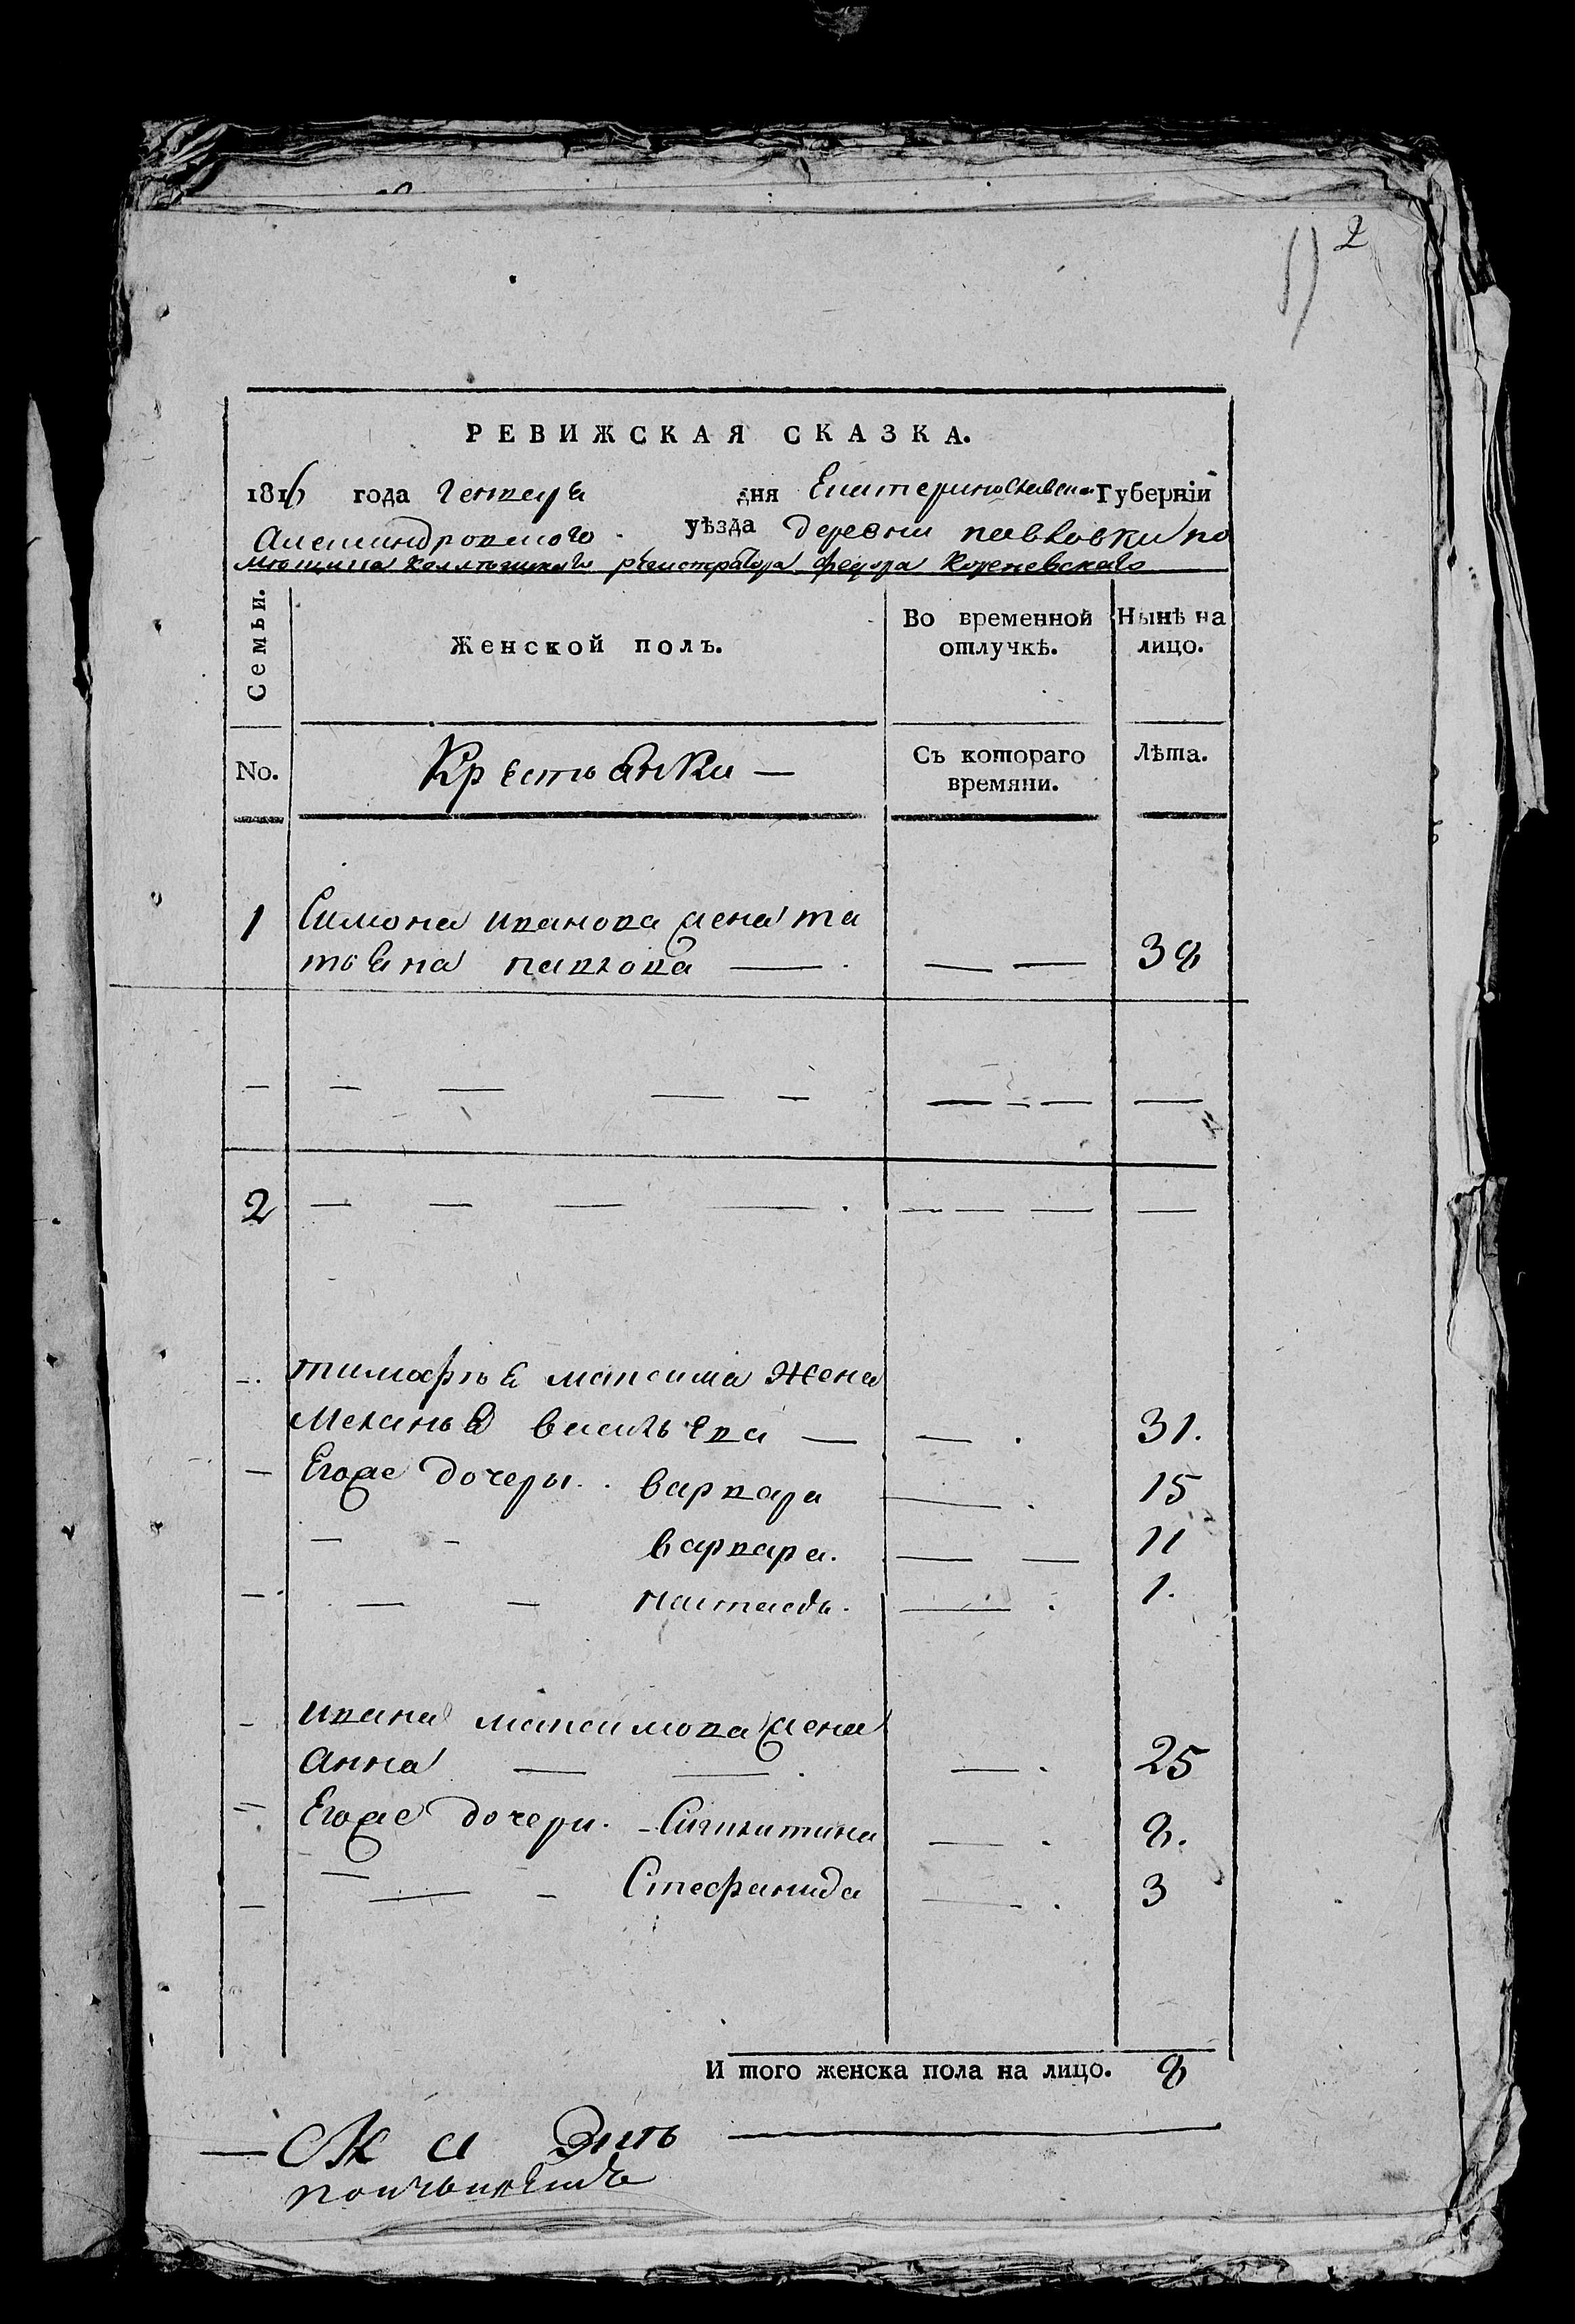 2
РЕВИЖСКАЯ СКАЗКА.
1816 года Генваря дня Екатеринославской Губерніи
Александровского уѣзда деревни павловки по
мѣщика коллѣжскаго рѣгистратора федора Кореневскаго
Семьи.
Женской полъ.
Во временной отлучкѣ.
Нынѣ на лицо.
No.
Крестьянки
Съ котораго времяни.
Лѣта.
1 Симона иванова жена та
тьяна павлова 38
2
тимофѣя максима жена
Меланья васильева 31.
Егоже дочеры варвара 15
варвара. 11
настасья. 1.
ивана максимова жена
анна 25
Егоже дочери. Сигклитина 8.
Стефанида 3
И того женска пола на лицо. 8